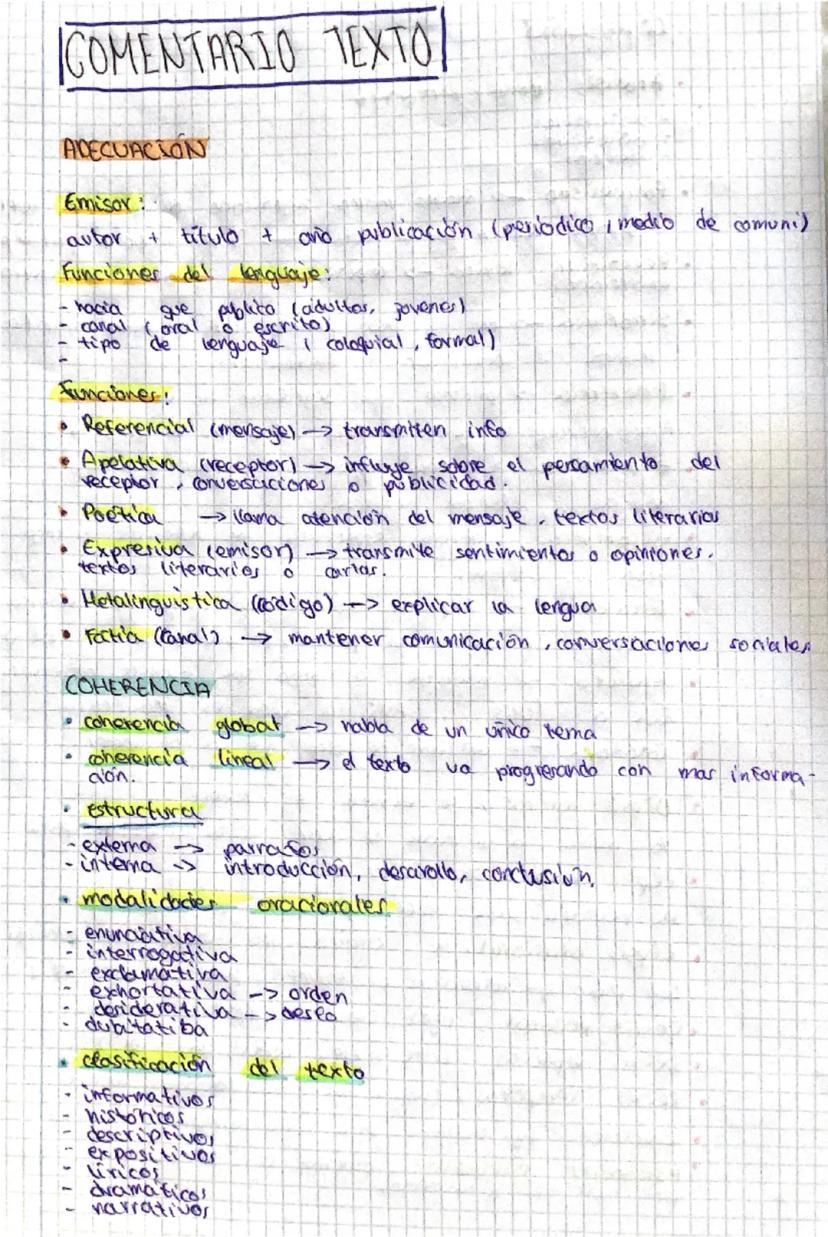 COMENTARIO TEXTO
ADECUACIÓN
Emisor:
autor + título + año publicación (periodico, medio de comuni)
Funciones del lenguaje:
- hacia que público (adultos, jovenes)
- canal (oral o escrito)
- tipo de lenguaje (coloquial, formal)
-
Funciones:
• Referencial (mensaje) → transmiten info
• Apelativa (receptor) → influye sobre el pensamiento del
receptor, conversaciones o publicidad.
• Poética → llama atención del mensaje, textos literarios
• Expresiva (emisor) → transmite sentimientos o opiniones.
textos literarios o cartas.
• Metalingüística (código) → explicar la lengua
• Factia (canal) → mantener comunicación, conversaciones sociales
COHERENCIA
• coherencia global → habla de un único tema
• coherencia lineal → el texto va progresando con mas informa-
ción.
• estructura
- externa → parrafos
- interna → introducción, desarollo, conclusión.
• modalidades oracionales
- enunciativa
- interrogativa
- exclamativa
- exhortativa → orden
- desiderativa → deseo
- dubitatiba
• clasificación del texto
- informativos
- históricos
- descriptivos
- expositivos
- líricos
- dramáticos
- narrativos